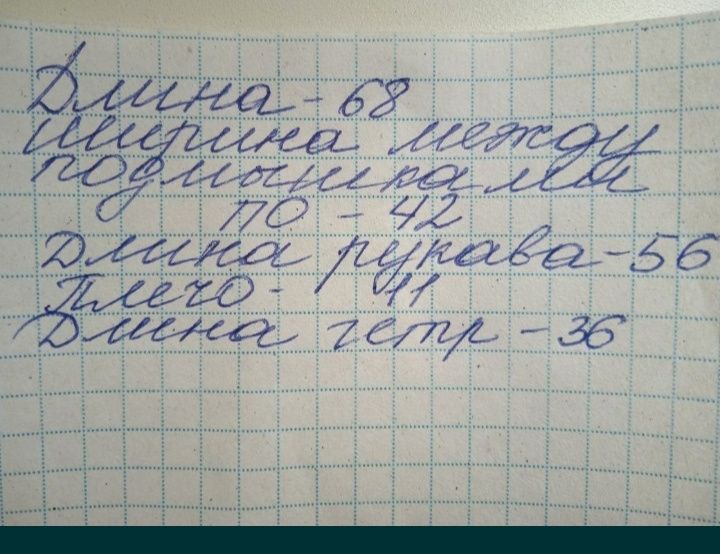 Длина - 68
ширина между
подмышками
ПО - 42
Длина рукава - 56
Плечо - 11
Длина гетр - 36